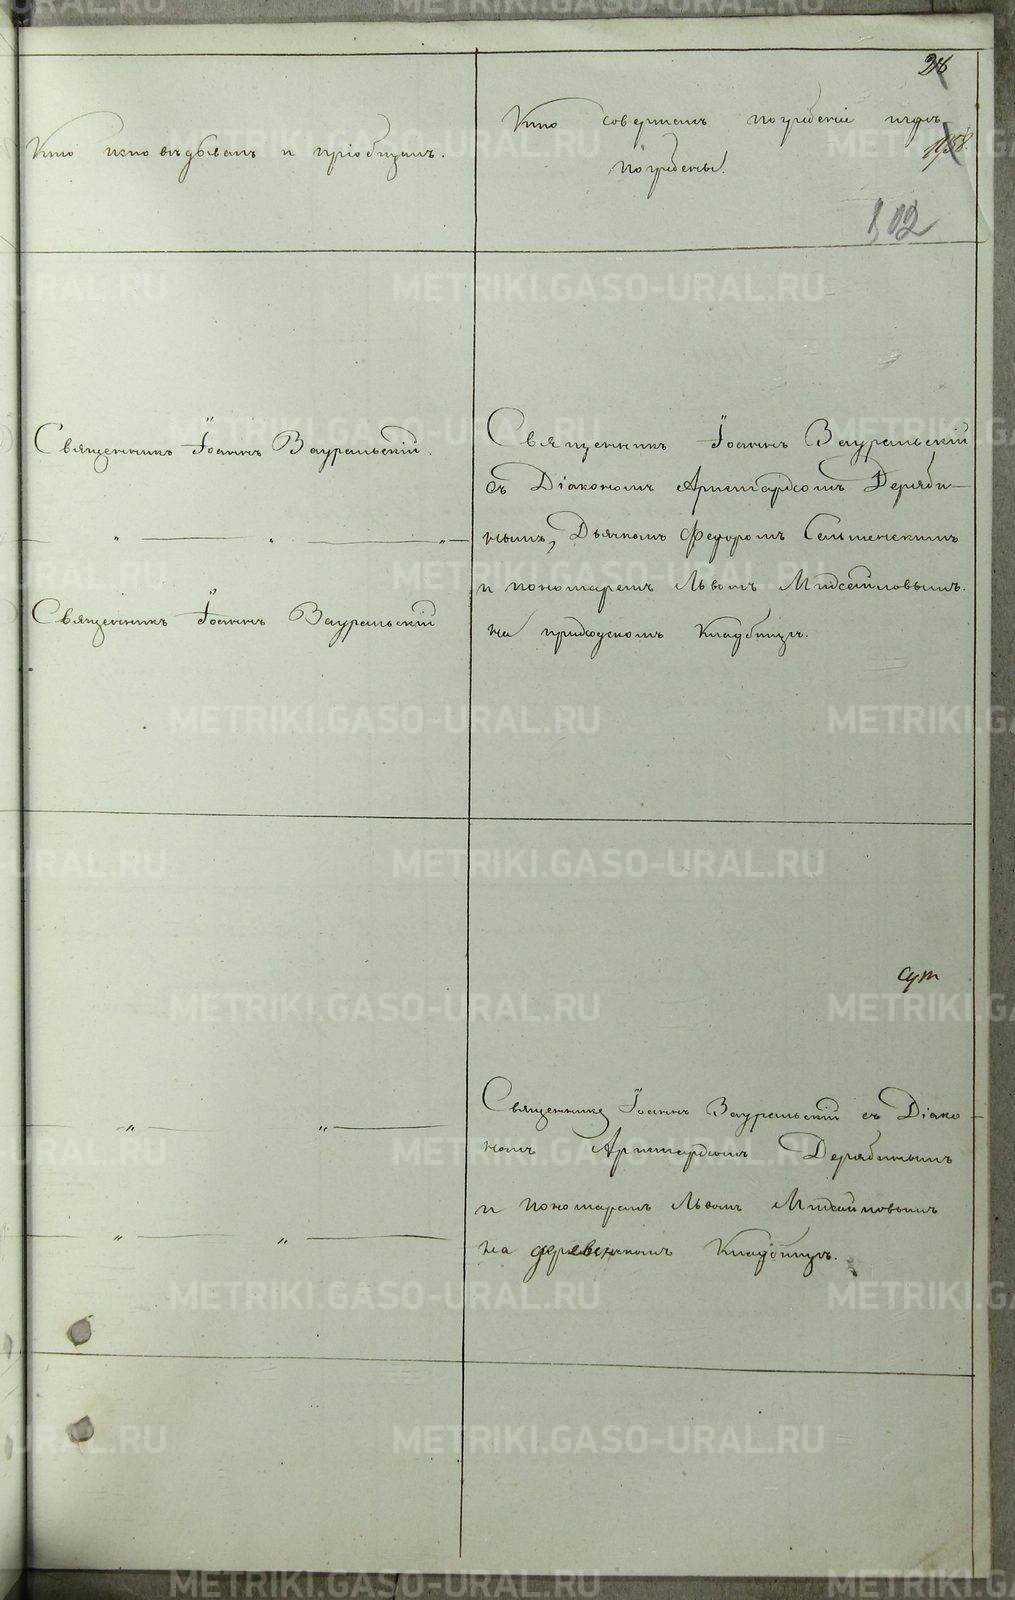 28
Кто исповѣдовалъ и пріобщалъ.
Кто совершалъ погребеніе и гдѣ
погребены.
1158.
102
Священникъ Іоаннъ Зауральскій.
" "
Священникъ Іоаннъ Зауральскій
Священникъ Іоаннъ Зауральскій
съ Діакономъ Аристархомъ Дерябин-
нымъ, Дьячкомъ Федоромъ Сельменскимъ
и пономаремъ Львомъ Михайловымъ.
на приходскомъ Кладбищѣ.
Священникъ Іоаннъ Зауральскій съ Діако-
номъ Аристархомъ Дерябинымъ
и пономаремъ Львомъ Михайловымъ
на деревенскомъ Кладбищѣ.
" "
" "
METRIKI.GASO-URAL.RU